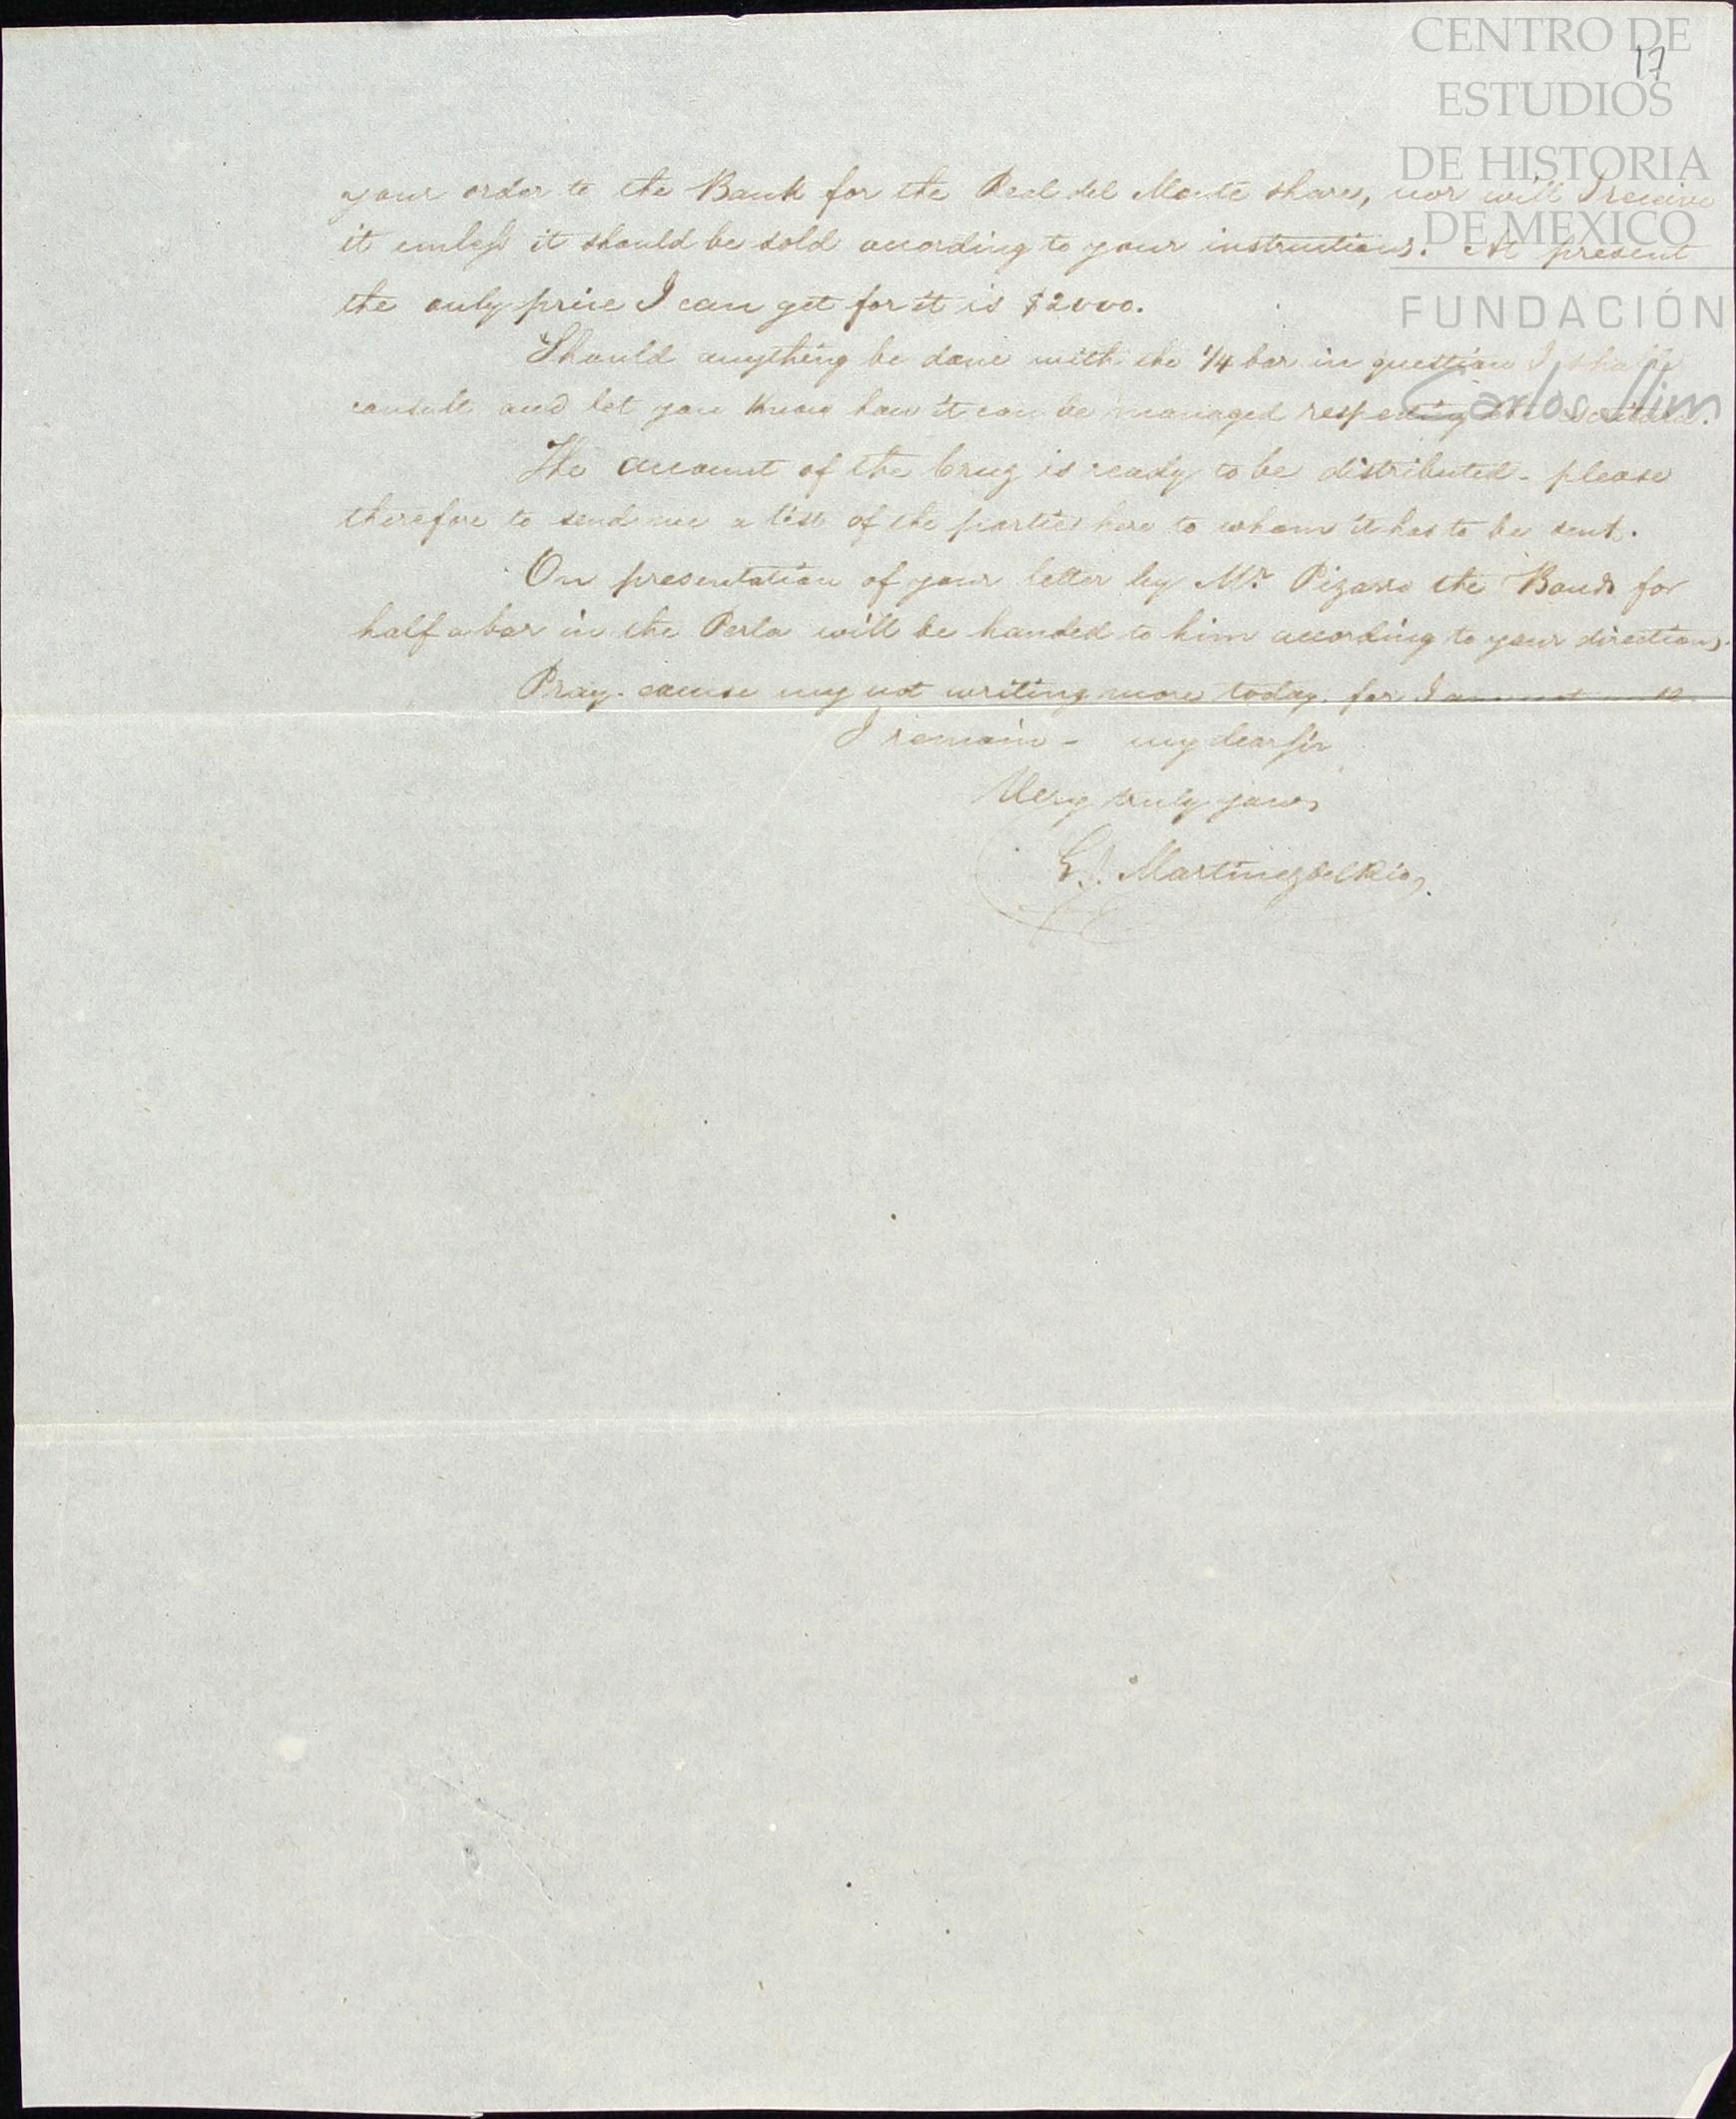 CENTRO DE
17
ESTUDIOS
DE HISTORIA
DE MEXICO
FUNDACIÓN
Carlos Slim
your order to the Bank for the Real del Monte share, nor will I receive
it unless it should be sold according to your instructions. At present
the only price I can get for it is $2000.
Should anything be done with the 1/4 bar in question I shall
consult and let you know how it can be managed respecting the escritura.
The account of the Cruz is ready to be distributed - please
therefore to send me a list of the parties here to whom it has to be sent.
On presentation of your letter by Mr. Pizarro the Bond for
half a bar in the Perla will be handed to him according to your directions.
Pray excuse my not writing more today, for I am not well.
I remain - my dear Sir
Very truly yours
Martinez del Rio